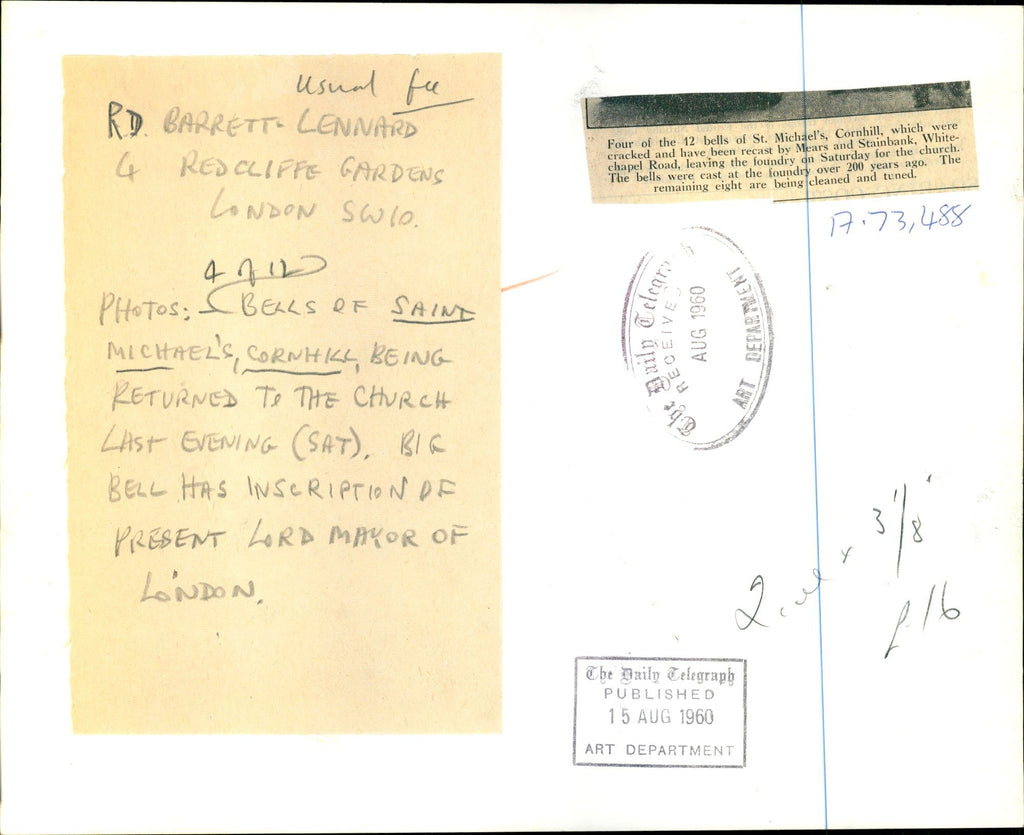 Usual fee
RD. BARRETT-LENNARD
4 REDCLIFFE GARDENS
LONDON SW10.
4 of 12
PHOTOS: BELLS OF SAINT
MICHAEL'S, CORNHILL, BEING
RETURNED To THE CHURCH
LAST EVENING (SAT). BIG
BELL HAS INSCRIPTION OF
PRESENT LORD MAYOR OF
LONDON.
Four of the 12 bells of St. Michael's, Cornhill, which were
cracked and have been recast by Mears and Stainbank, White-
chapel Road, leaving the foundry on Saturday for the church.
The bells were cast at the foundry over 200 years ago. The
remaining eight are being cleaned and tuned.
17.73,488
The Daily Telegraph
RECEIVED
AUG 1960
ART DEPARTMENT
2 col x 3 1/8"
P.16
The Daily Telegraph
PUBLISHED
15 AUG 1960
ART DEPARTMENT